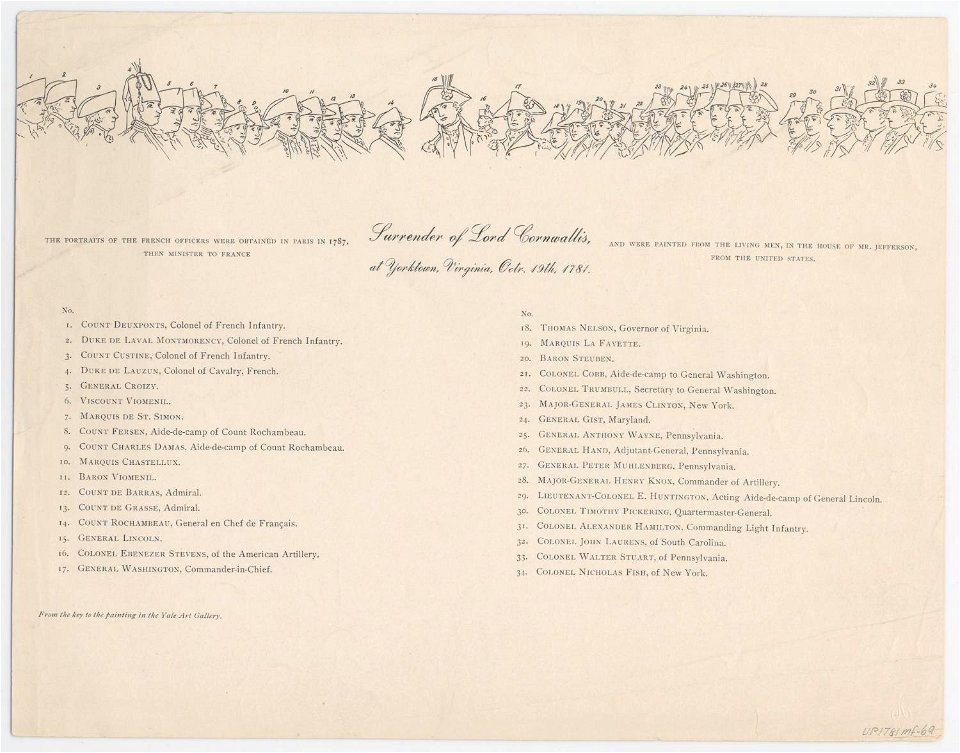 1 2 3 4 5 6 7 8 9 10 11 12 13 14 15 16 17 18 19 20 21 22 23 24 25 26 27 28 29 30 31 32 33 34
THE PORTRAITS OF THE FRENCH OFFICERS WERE OBTAINED IN PARIS IN 1787,
THEN MINISTER TO FRANCE
Surrender of Lord Cornwallis,
at Yorktown, Virginia, Octr. 19th, 1781.
AND WERE PAINTED FROM THE LIVING MEN, IN THE HOUSE OF MR. JEFFERSON,
FROM THE UNITED STATES.
No.
1. COUNT DEUXPONTS, Colonel of French Infantry.
2. DUKE DE LAVAL MONTMORENCY, Colonel of French Infantry.
3. COUNT CUSTINE, Colonel of French Infantry.
4. DUKE DE LAUZUN, Colonel of Cavalry, French.
5. GENERAL CROIZY.
6. VISCOUNT VIOMENIL.
7. MARQUIS DE ST. SIMON.
8. COUNT FERSEN, Aide-de-camp of Count Rochambeau.
9. COUNT CHARLES DAMAS, Aide-de-camp of Count Rochambeau.
10. MARQUIS CHASTELLUX.
11. BARON VIOMENIL.
12. COUNT DE BARRAS, Admiral.
13. COUNT DE GRASSE, Admiral.
14. COUNT ROCHAMBEAU, General en Chef de Français.
15. GENERAL LINCOLN.
16. COLONEL EBENEZER STEVENS, of the American Artillery.
17. GENERAL WASHINGTON, Commander-in-Chief.
No.
18. THOMAS NELSON, Governor of Virginia.
19. MARQUIS LA FAYETTE.
20. BARON STEUBEN.
21. COLONEL COBB, Aide-de-camp to General Washington.
22. COLONEL TRUMBULL, Secretary to General Washington.
23. MAJOR-GENERAL JAMES CLINTON, New York.
24. GENERAL GIST, Maryland.
25. GENERAL ANTHONY WAYNE, Pennsylvania.
26. GENERAL HAND, Adjutant-General, Pennsylvania.
27. GENERAL PETER MUHLENBERG, Pennsylvania.
28. MAJOR-GENERAL HENRY KNOX, Commander of Artillery.
29. LIEUTENANT-COLONEL E. HUNTINGTON, Acting Aide-de-camp of General Lincoln.
30. COLONEL TIMOTHY PICKERING, Quartermaster-General.
31. COLONEL ALEXANDER HAMILTON, Commanding Light Infantry.
32. COLONEL JOHN LAURENS, of South Carolina.
33. COLONEL WALTER STUART, of Pennsylvania.
34. COLONEL NICHOLAS FISH, of New York.
From the key to the painting in the Yale Art Gallery.
UP1781mf-69